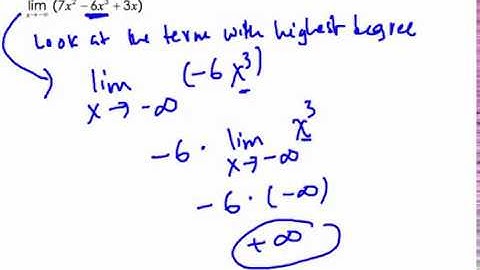 lim (7x² − 6x³ + 3x)
x→−∞
Look at the term with highest degree
lim (−6x³)
x → −∞
−6 · lim x³
x → −∞
−6 · (−∞)
+∞